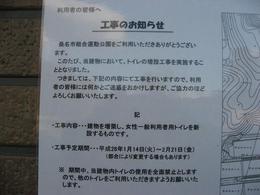 利用者の皆様へ
工事のお知らせ
桑名市総合運動公園をご利用いただきありがとうございます。
このたび、当建物において、トイレの増設工事を実施することとなりました。
つきましては、下記の内容にて工事を行いますので、利用者の皆様には何かとご迷惑をおかけしますが、ご協力のほどよろしくお願いいたします。
記
・工事内容・・・建物を増築し、女性一般利用者用トイレを新設するものです。
・工事予定期間・・・平成26年1月14日(火)~2月21日(金)
(都合により変更する場合もあります)
※ 期間中、当建物内トイレの使用を全面禁止としますので、他のトイレをご利用いただきますようお願いいたします。